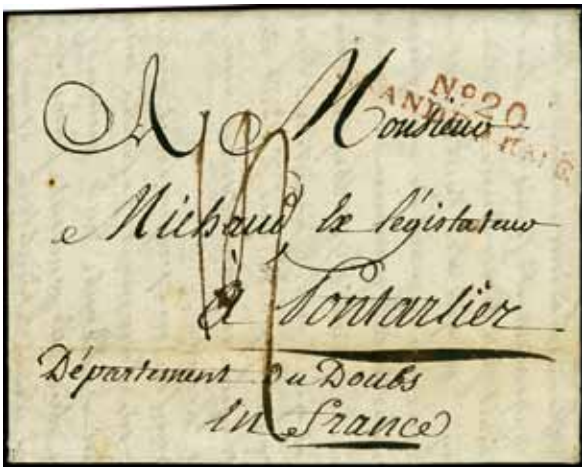 Nº 20
A Monsieur
Michaud Ex législateur
à Pontarlier
Département du Doubs
en france